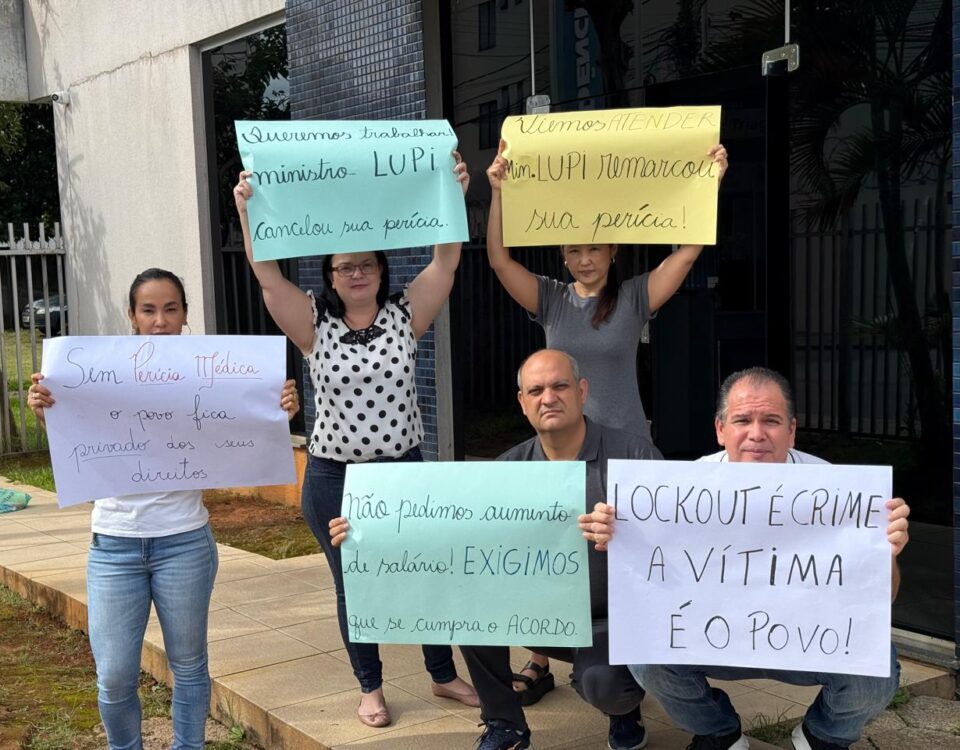 Queremos trabalhar!
ministro LUPi
cancelou sua perícia.
Viemos ATENDER
Min. LUPI remarcou
sua perícia!
Sem Perícia Médica
o povo fica
privado dos seus
direitos
Não pedimos aumento
de salário! EXIGIMOS
que se cumpra o ACORDO.
LOCKOUT É CRIME
A VÍTIMA
É O POVO!